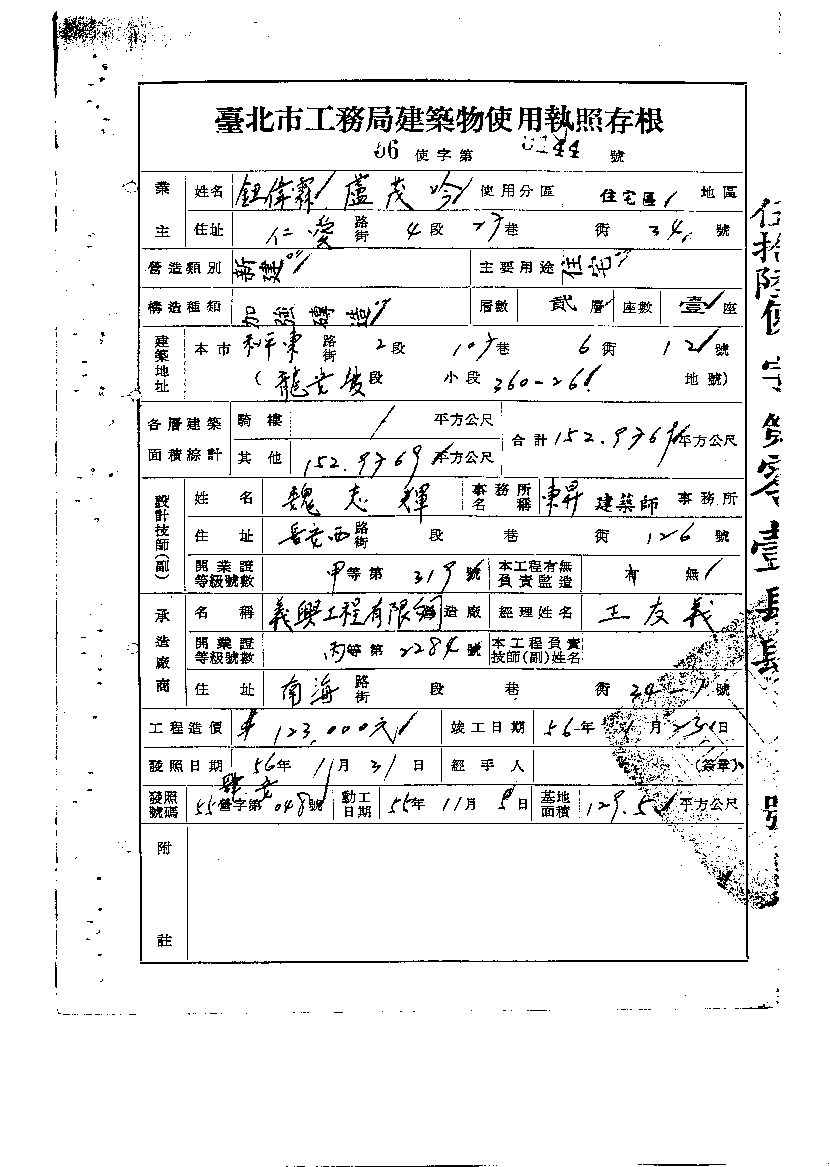 臺北市工務局建築物使用執照存根
06 使字第 0144 號
業主 姓名 鈕偉霖 盧茂吟 使用分區 住宅區 地區
住址 仁愛 路街 4 段 27 巷 街 34 號
營造類別 新建 主要用途 住宅
構造種類 加強磚造 層數 貳層 座數 壹座
建築地址 本市 和平東 路街 2 段 107 巷 6 街 12 號
( 龍安坡段 小段 360-26 地號)
各層建築面積綜計 騎樓 / 平方公尺 合計 152.9769 平方公尺
其他 152.9769 平方公尺
設計技師(副) 姓名 魏志輝 事務所名稱 東昇 建築師 事務所
住址 長安西 路街 段 巷 街 126 號
開業證等級號數 甲等第 319 號 本工程有無負責監造 有 無
承造廠商 名稱 義興工程有限公司 造廠 經理姓名 王友義
開業證等級號數 丙等第 2284 號 本工程負責技師(副)姓名
住址 南海 路街 段 巷 街 24-1 號
工程造價 123,000元 竣工日期 56年 1月 23日
發照日期 56年 1月 31日 經手人 (簽章)
發照號碼 55營字第 048號 動工日期 55年 11月 9日 基地面積 129.5 平方公尺
附註
伍拾陸使字第零壹肆肆號